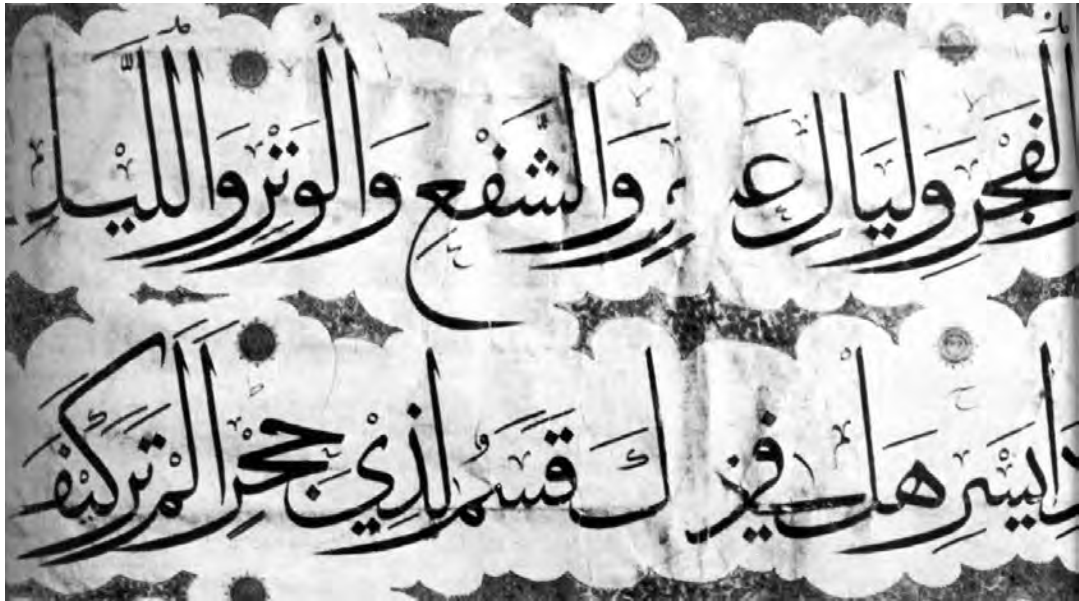 الْفَجْرِ وَلَيَالٍ عَشْرٍ وَالشَّفْعِ وَالْوَتْرِ وَاللَّيْلِ
إِذَا يَسْرِ هَلْ فِي ذَلِكَ قَسَمٌ لِذِي حِجْرٍ أَلَمْ تَرَ كَيْفَ